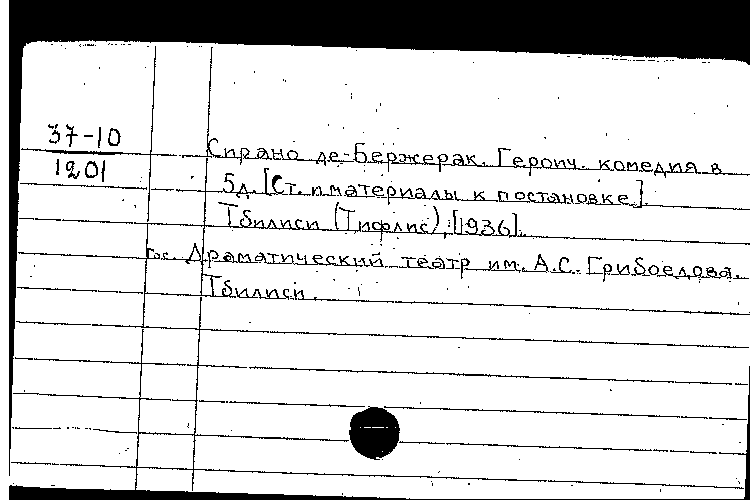 37-10
1201
Сирано де-Бержерак. Героич. комедия в
5д. [Ст. и материалы к постановке].
Тбилиси (Тифлис), [1936].
Гос. Драматический театр им. А.С. Грибоедова.
Тбилиси.